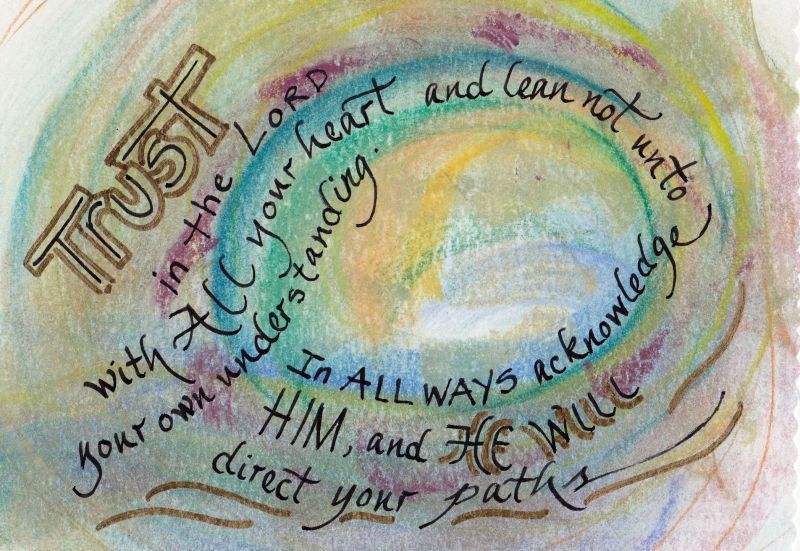 Trust
in the LORD
with ALL your heart and lean not unto
your own understanding.
In ALL WAYS acknowledge
HIM, and HE WILL
direct your paths